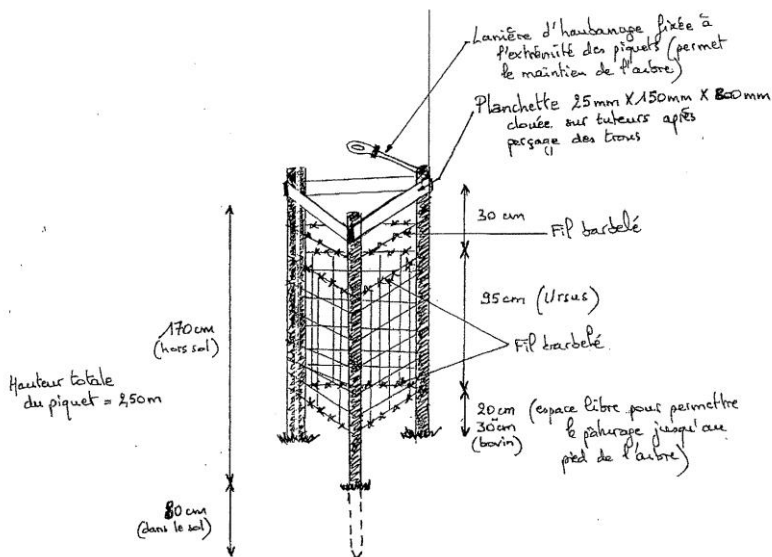 Lanière d'haubanage fixée à
l'extrémité des piquets (permet
le maintien de l'arbre)
Planchette 25mm X 150mm X 800mm
clouée sur tuteurs après
perçage des trous
30 cm
Fil barbelé
95cm (Ursus)
170cm
(hors sol)
Fil barbelé
Hauteur totale
du piquet = 250m
20cm (espace libre pour permettre
30cm le pâturage jusqu'au
(bovin) pied de l'arbre)
80cm
(dans le sol)